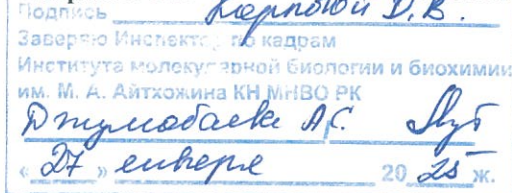 Подпись Карповой Д.В.
Заверяю Инспектор по кадрам
Института молекулярной биологии и биохимии
им. М. А. Айтхожина КН МНВО РК
Джумабаева А.С.
« 27 » января 20 25 ж.